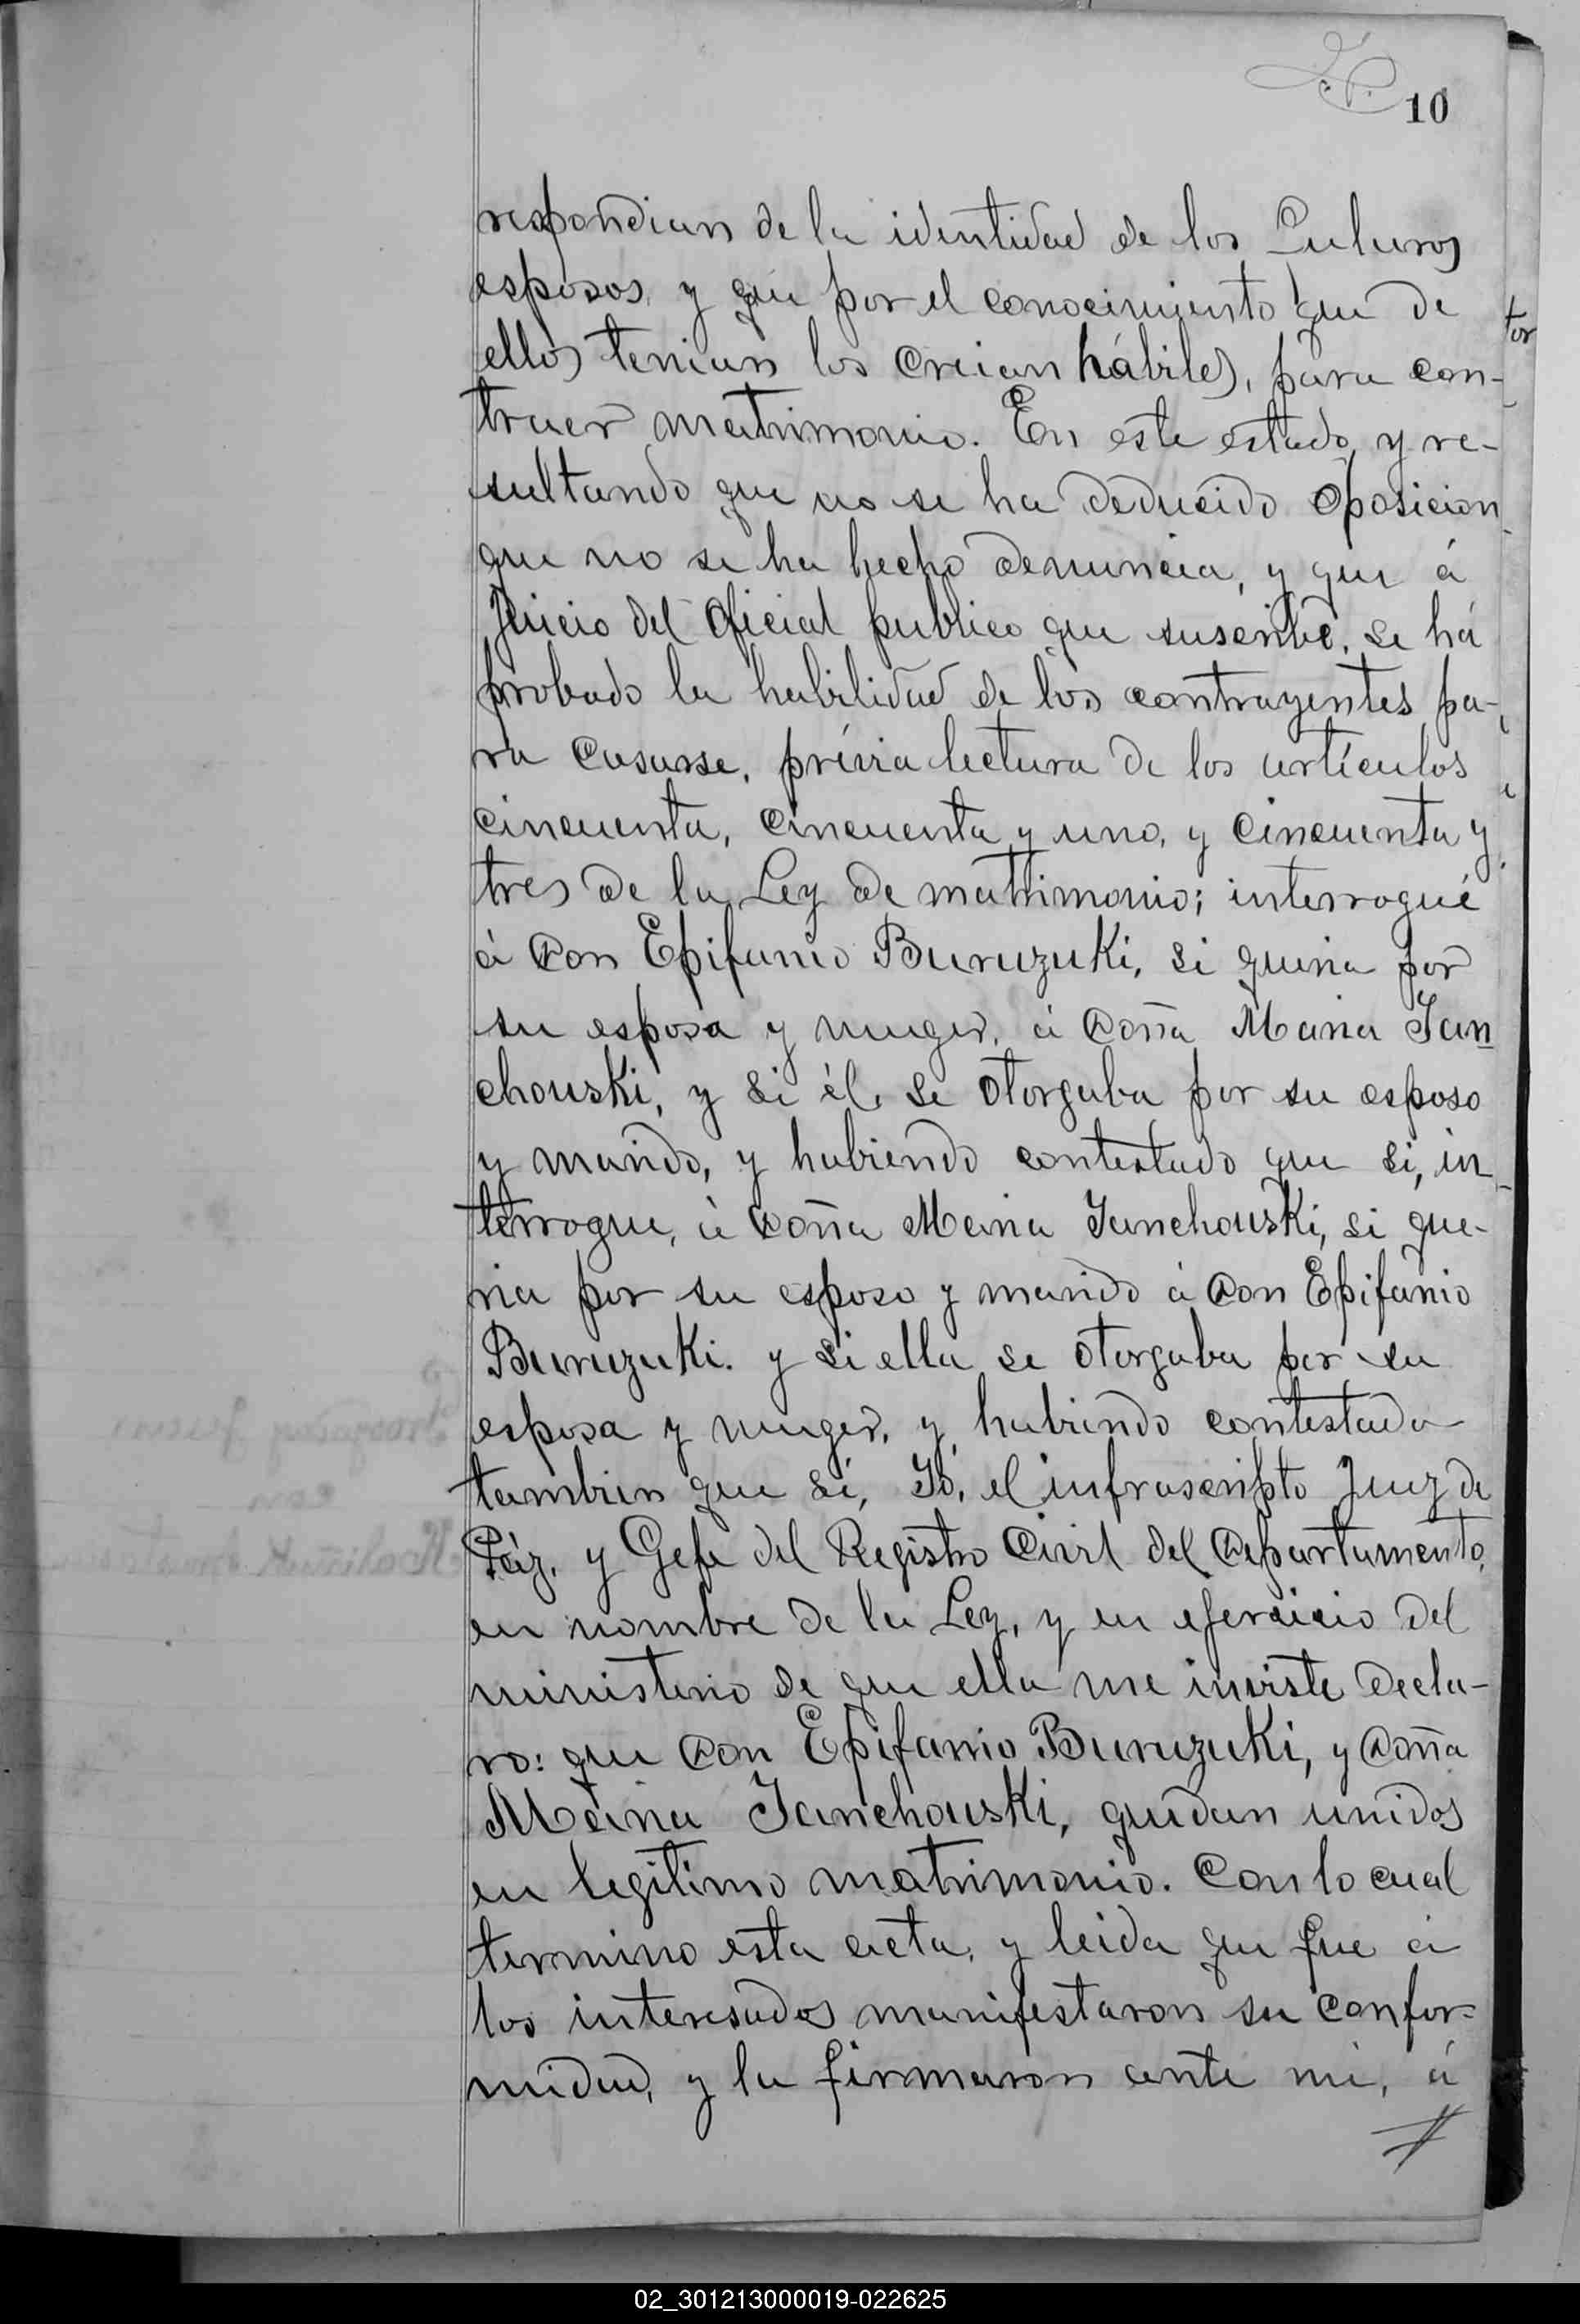 10
respondian de la identidad de los Futuros
esposos, y que por el conocimiento que de
ellos tenian los creian hábiles, para con-
traer matrimonio. En este estado, y re-
sultando que no se ha deducido oposicion
que no se ha hecho denuncia, y que á
juicio del oficial publico que suscribe, se há
probado la habilidad de los contrayentes pa-
ra casarse, prévia lectura de los artículos
cincuenta, cincuenta y uno, y cincuenta y
tres de la Ley de matrimonio; interrogué
á Don Epifanio Buruzuki, si queria por
su esposa y muger, á Doña Maria Jan
chouski, y si él, se otorgaba por su esposo
y marido, y habiendo contestado que si, in-
terrogue, á Doña Maria Janchouski, si que-
ria por su esposo y marido á Don Epifanio
Buruzuki. y si ella se otorgaba por su
esposa y muger, y habiendo contestado
tambien que sí, Yo, el infrascripto Juez de
Páz, y Gefe del Registro Civil del Departamento,
en nombre de la Ley, y en ejercicio del
ministerio de que ella me inviste decla-
ro: que Don Epifanio Buruzuki, y Doña
Maria Janchouski, quedan unidos
en legitimo matrimonio. Con lo cual
termino esta acta, y leida que fue á
los interesados manifestaron su confor-
midad, y la firmaron ante mi, á
02_301213000019-022625